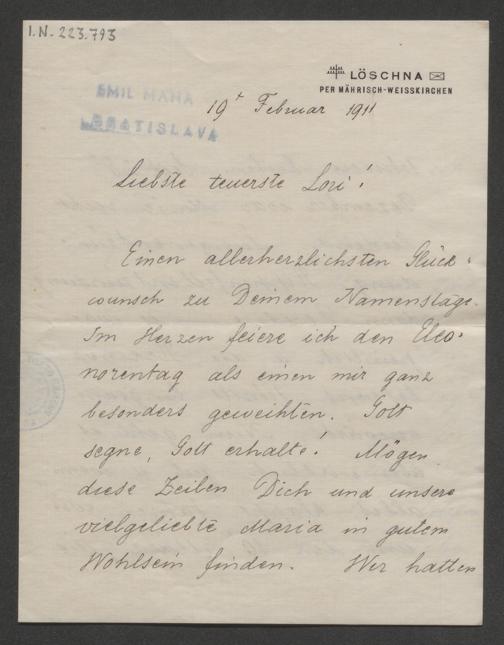 I.N. 223.793
LÖSCHNA
PER MÄHRISCH-WEISSKIRCHEN
EMIL MAHA
BRATISLAVA
19t Februar 1911
Liebste teuerste Lori!
Einen allerherzlichsten Glück-
wunsch zu Deinem Namenstage.
Im Herzen feiere ich den Eleo-
norentag als einen mir ganz
besonders geweihten. Gott
segne, Gott erhalte! Mögen
diese Zeilen Dich und unsere
vielgeliebte Maria in gutem
Wohlsein finden. Wir hatten